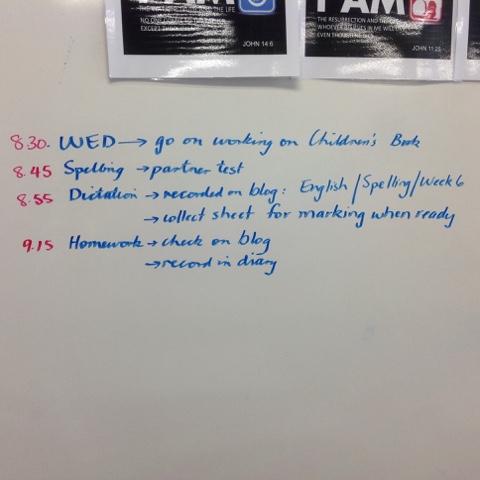 I AM
THE LIFE
NO ONE
EXCEPT
JOHN 14:6
I AM
THE RESURRECTION AND
WHOEVER
IN ME WILL
EVEN
JOHN 11:25
8.30. WED → go on working on Children's Book
8.45 Spelling → partner test
8.55 Dictation → recorded on blog: English/Spelling/Week 6
→ collect sheet for marking when ready
9.15 Homework → check on blog
→ record in diary